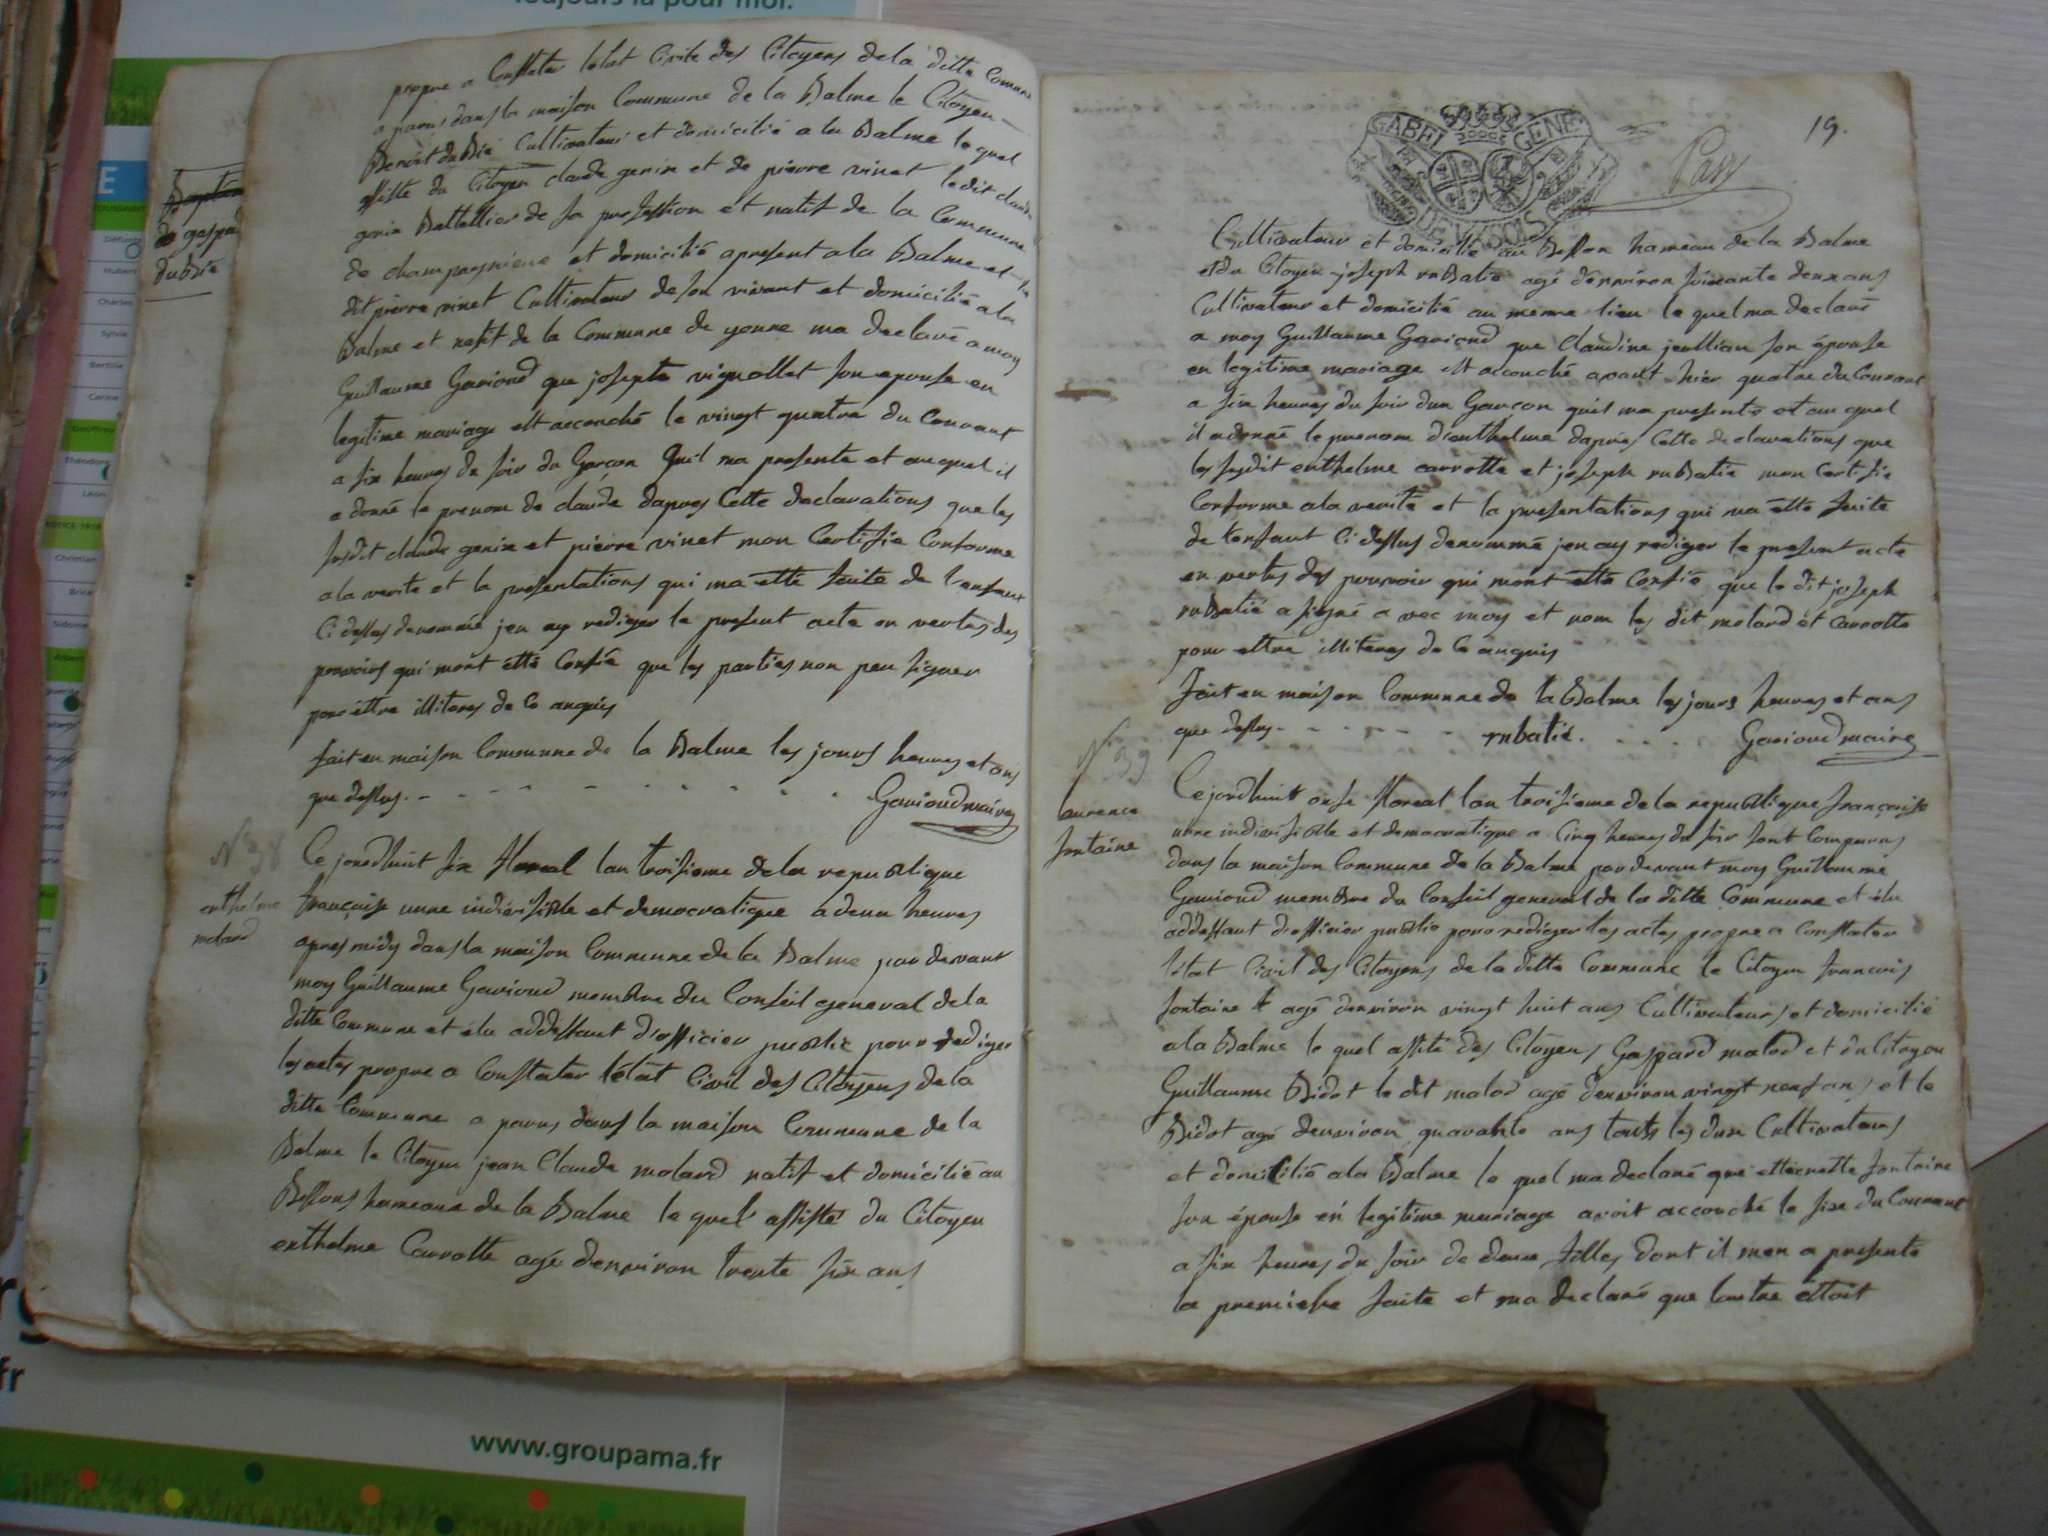 toujours là pour moi.
propre a Constater letat Civile des Citoyens de la ditte Comune
a parus dans la maison Commune de la Balme le Citoyen
Benoit duBié Cultivateur et domicilié a la Balme le quel
assisté du Citoyen claude genin et de pierre vinet ledit claude
genin Battellier de sa profession et natif de la Commune
de champagnieue et domicilié apresent a la Balme et le
dit pierre vinet Cultivateur de son vivant et domicilié a la
Balme et natif de la Commune de yenne ma declaré a moy
Guillaume Gavioud que josepte vignollet son epouse en
legitime mariage est accouché le vingt quatre du Courant
a six heures de soir du Garçon Quil ma presente et auquel il
a donné le prenom de claude dapres Cette declarations que les
susdit claude genin et pierre vinet mon Certifié Conforme
a la verite et la presentations qui ma etté faite de l'enfant
Ci dessus denommé jen ay rediger le present acte en vertus des
pouvoirs qui mont etté Confié que les parties non peu signer
pour ettre illiteres de Ce anquis
fait en maison Commune de la Balme les jours heures et ans
que dessus. - - - - - - - - - Gavioud maire
N° 38
enthelme
molard
Ce jourdhuit six floreal lan troisieme de la republique
française unne indivisible et democratique a deux heures
apres midy dans la maison Commune de la Balme par devant
moy Guillaume Gavioud membre du Conseil general de la
ditte Commune et élu addessant d'officier public pour rediger
les actes propre a Constater létat Civil des Citoyens de la
ditte Commune a parus dans la maison Commune de la
Balme le Citoyen jean Claude molard natif et domicilié au
Bessons hameaux de la Balme le quel assisté du Citoyen
enthelme Carrotte agé denviron trente six ans
de gaspard
duBié
19.
GABEL GENE
DE
Cultivateur et domicilié au Besson hameau de la Balme
et du Citoyen joseph ruBatié agé denviron soixante deux ans
Cultivateur et domicilié au meme lieu le quel ma declaré
a moy Guillaume Gavioud que claudine jeullian son épouse
en legitime mariage est accouché avant hier quatre du Courant
a six heures du soir dun Garçon quil ma presenté et au quel
il a donné le prenom d'enthelme dapres Cette declarations que
les susdit enthelme carrotte et joseph ruBatié mon Certifié
Conforme a la verité et la presentations qui ma etté faite
de lenfant Ci dessus denommé jen ay rediger le present acte
en vertus des pouvoir qui mont etté Confié que le dit joseph
ruBatié a signé a vec moy et nom les dit molard et Carrotte
pour ettre illiteres de Ce anquis
fait en maison Commune de la Balme les jours heures et ans
que dessus. - - - - - rubatié. - - - - Gavioud maire
N° 39
laurence
fontaine
Ce jourdhuit onse floreal lan troisieme de la republique française
unne indivisible et democratique a Cinq heures du soir sont Comparus
dans la maison Commune de la Balme par devant moy Guillaume
Gavioud membre du Conseil general de la ditte Commune et élu
addessant d'officier public pour rediger les actes propre a Constater
létat Civil des Citoyens de la ditte Commune le Citoyen francois
fontaine agé denviron vingt huit ans Cultivateurs et domicilié
a la Balme le quel assité des Citoyens Gaspard malod et du Citoyen
Guillaume Bidot le dit malod agé denviron vingt neuf ans et le
Bidot agé denviron quarante ans touts les deux Cultivateurs
et domicilié a la Balme le quel ma declaré que fontaine
son épouse en legitime mariage avoit accouché le six du Courant
a six heures du soir de deux filles dont il men a presente
la premiere faite et ma declaré que lautre éttoit
www.groupama.fr